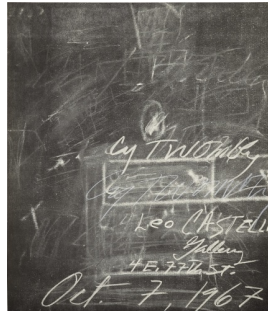 Cy TWOMbly
Leo CASTELLI
Gallery
4 E. 77th ST.
Oct. 7, 1967